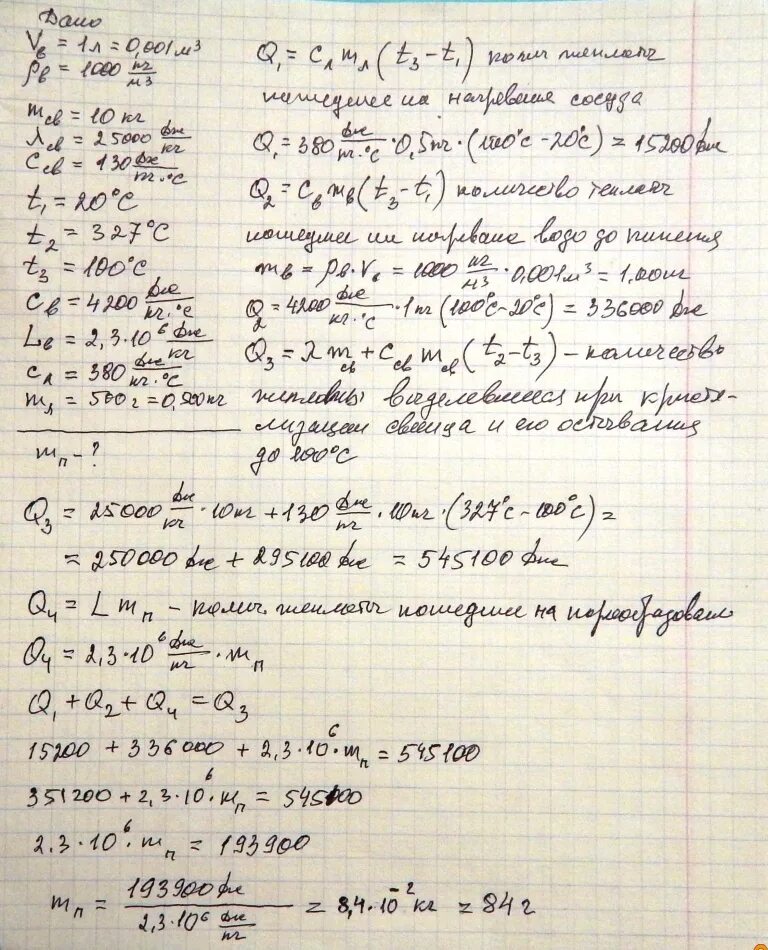 Дано
Vв = 1л = 0,001 м³
ρв = 1000 кг/м³
mсв = 10 кг
λсв = 25000 Дж/кг
Cсв = 130 Дж/кг·°C
t₁ = 20°C
t₂ = 327°C
t₃ = 100°C
Cв = 4200 Дж/кг·°C
Lв = 2,3·10⁶ Дж/кг
Cл = 380 Дж/кг·°C
mл = 500г = 0,500кг
mп - ?
Q₁ = Cл mл (t₃ - t₁) колич теплоты
пошедшее на нагревание сосуда
Q₁ = 380 Дж/кг·°C · 0,5кг · (100°C - 20°C) = 15200 Дж
Q₂ = Cв mв (t₃ - t₁) количество теплоты
пошедшее на нагревание воды до кипения
mв = ρв·Vв = 1000 кг/м³ · 0,001 м³ = 1,00кг
Q₂ = 4200 Дж/кг·°C · 1кг (100°C - 20°C) = 336000 Дж
Q₃ = λ mсв + Cсв mсв (t₂ - t₃) - количество
теплоты выделевшееся при криста-
лизации свинца и его остывания
до 100°C
Q₃ = 25000 Дж/кг · 10кг + 130 Дж/кг · 10кг · (327°C - 100°C) =
= 250000 Дж + 295100 Дж = 545100 Дж
Q₄ = L mп - колич. теплоты пошедшее на парообразован
Q₄ = 2,3·10⁶ Дж/кг · mп
Q₁ + Q₂ + Q₄ = Q₃
15200 + 336000 + 2,3·10⁶·mп = 545100
351200 + 2,3·10⁶·mп = 545100
2.3·10⁶·mп = 193900
mп = 193900 Дж / 2,3·10⁶ Дж/кг = 8,4·10⁻² кг = 84 г